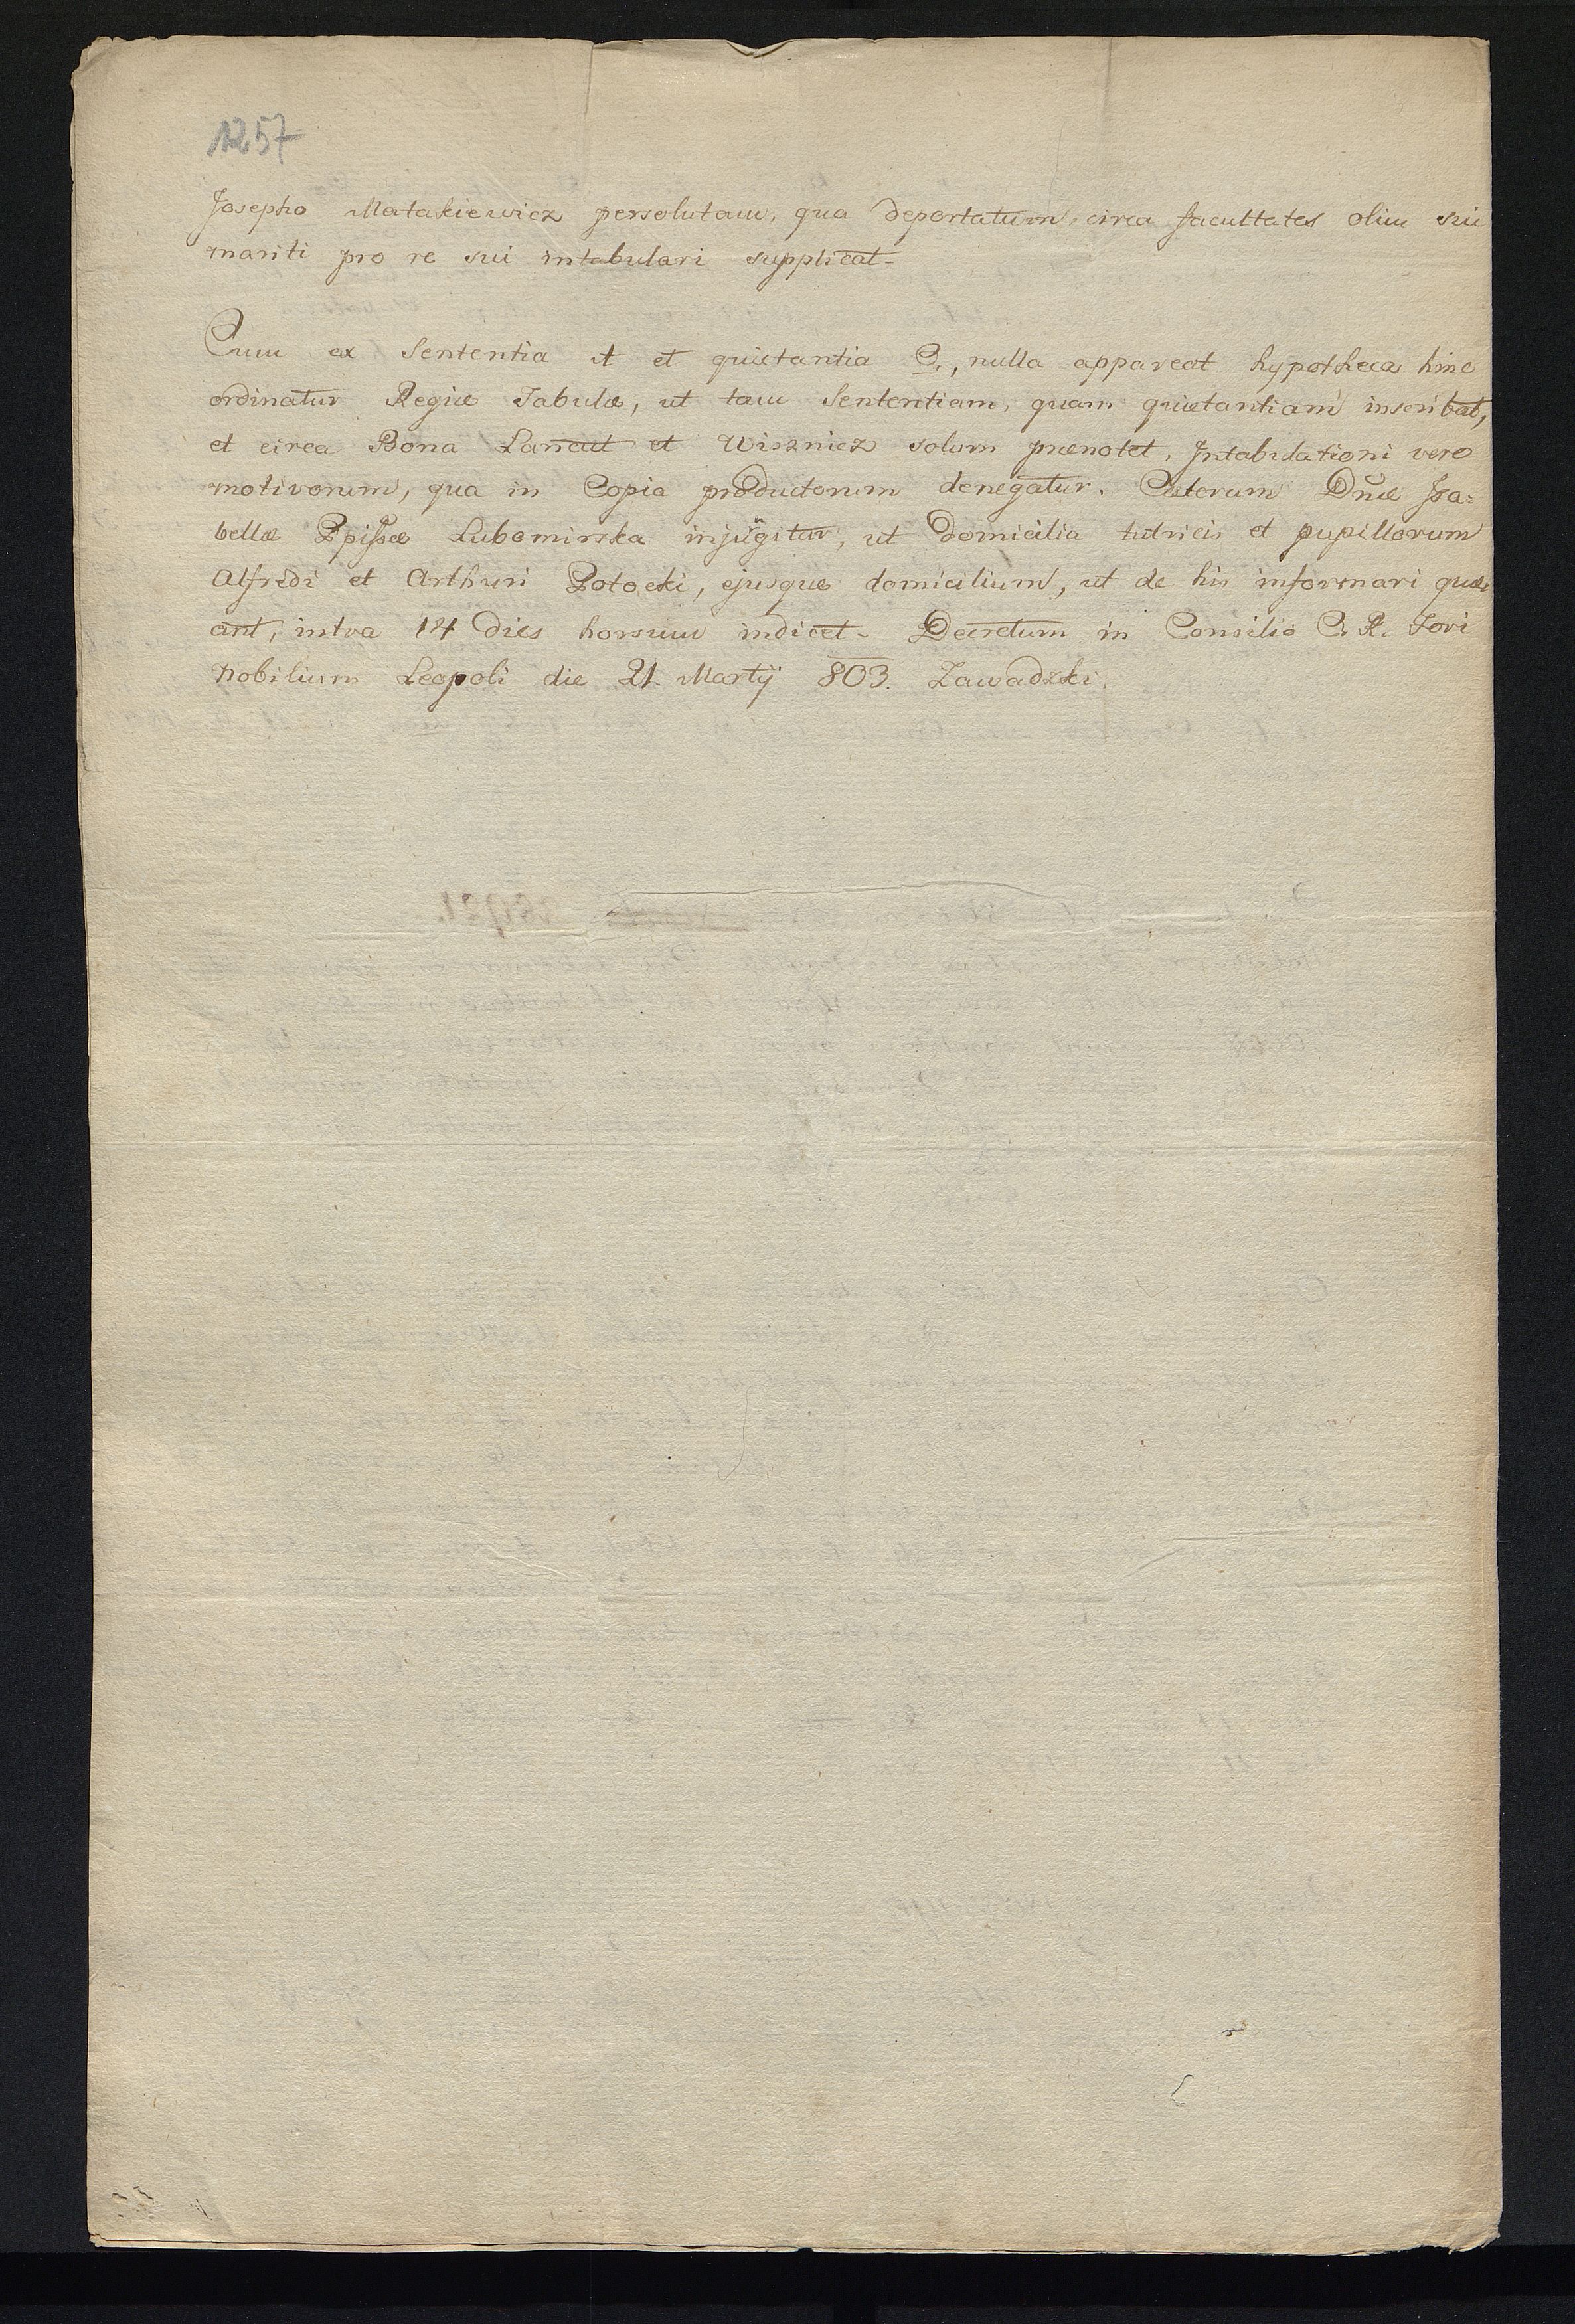 1257
Josepho Matakiewicz persolutam, qua deportatum circa facultates olim sui
mariti pro re sui intabulari supplicat.
Cum ex Sententia A et quietantia C., nulla appareat hypotheca hinc
ordinatur Regiæ Tabulæ, ut tam Sententiam, quam quietantiam inscribat,
et circa Bona Lancut et Wisznicz solum prænotet. Intabulationi vero
motivorum, qua in Copia productorum denegatur. Cæterum Dnæ Isa=
bellæ Ppissæ Lubomirska injugitur, ut domicilia tutricis et pupillorum
Alfredi et Arthuri Potocki, ejusque domicilium, ut de his informari que=
ant, intra 14 dies horsum indicet. Decretum in Consilio C. R. Fori
Nobilium Leopoli die 21. Martij 803. Zawadzki.